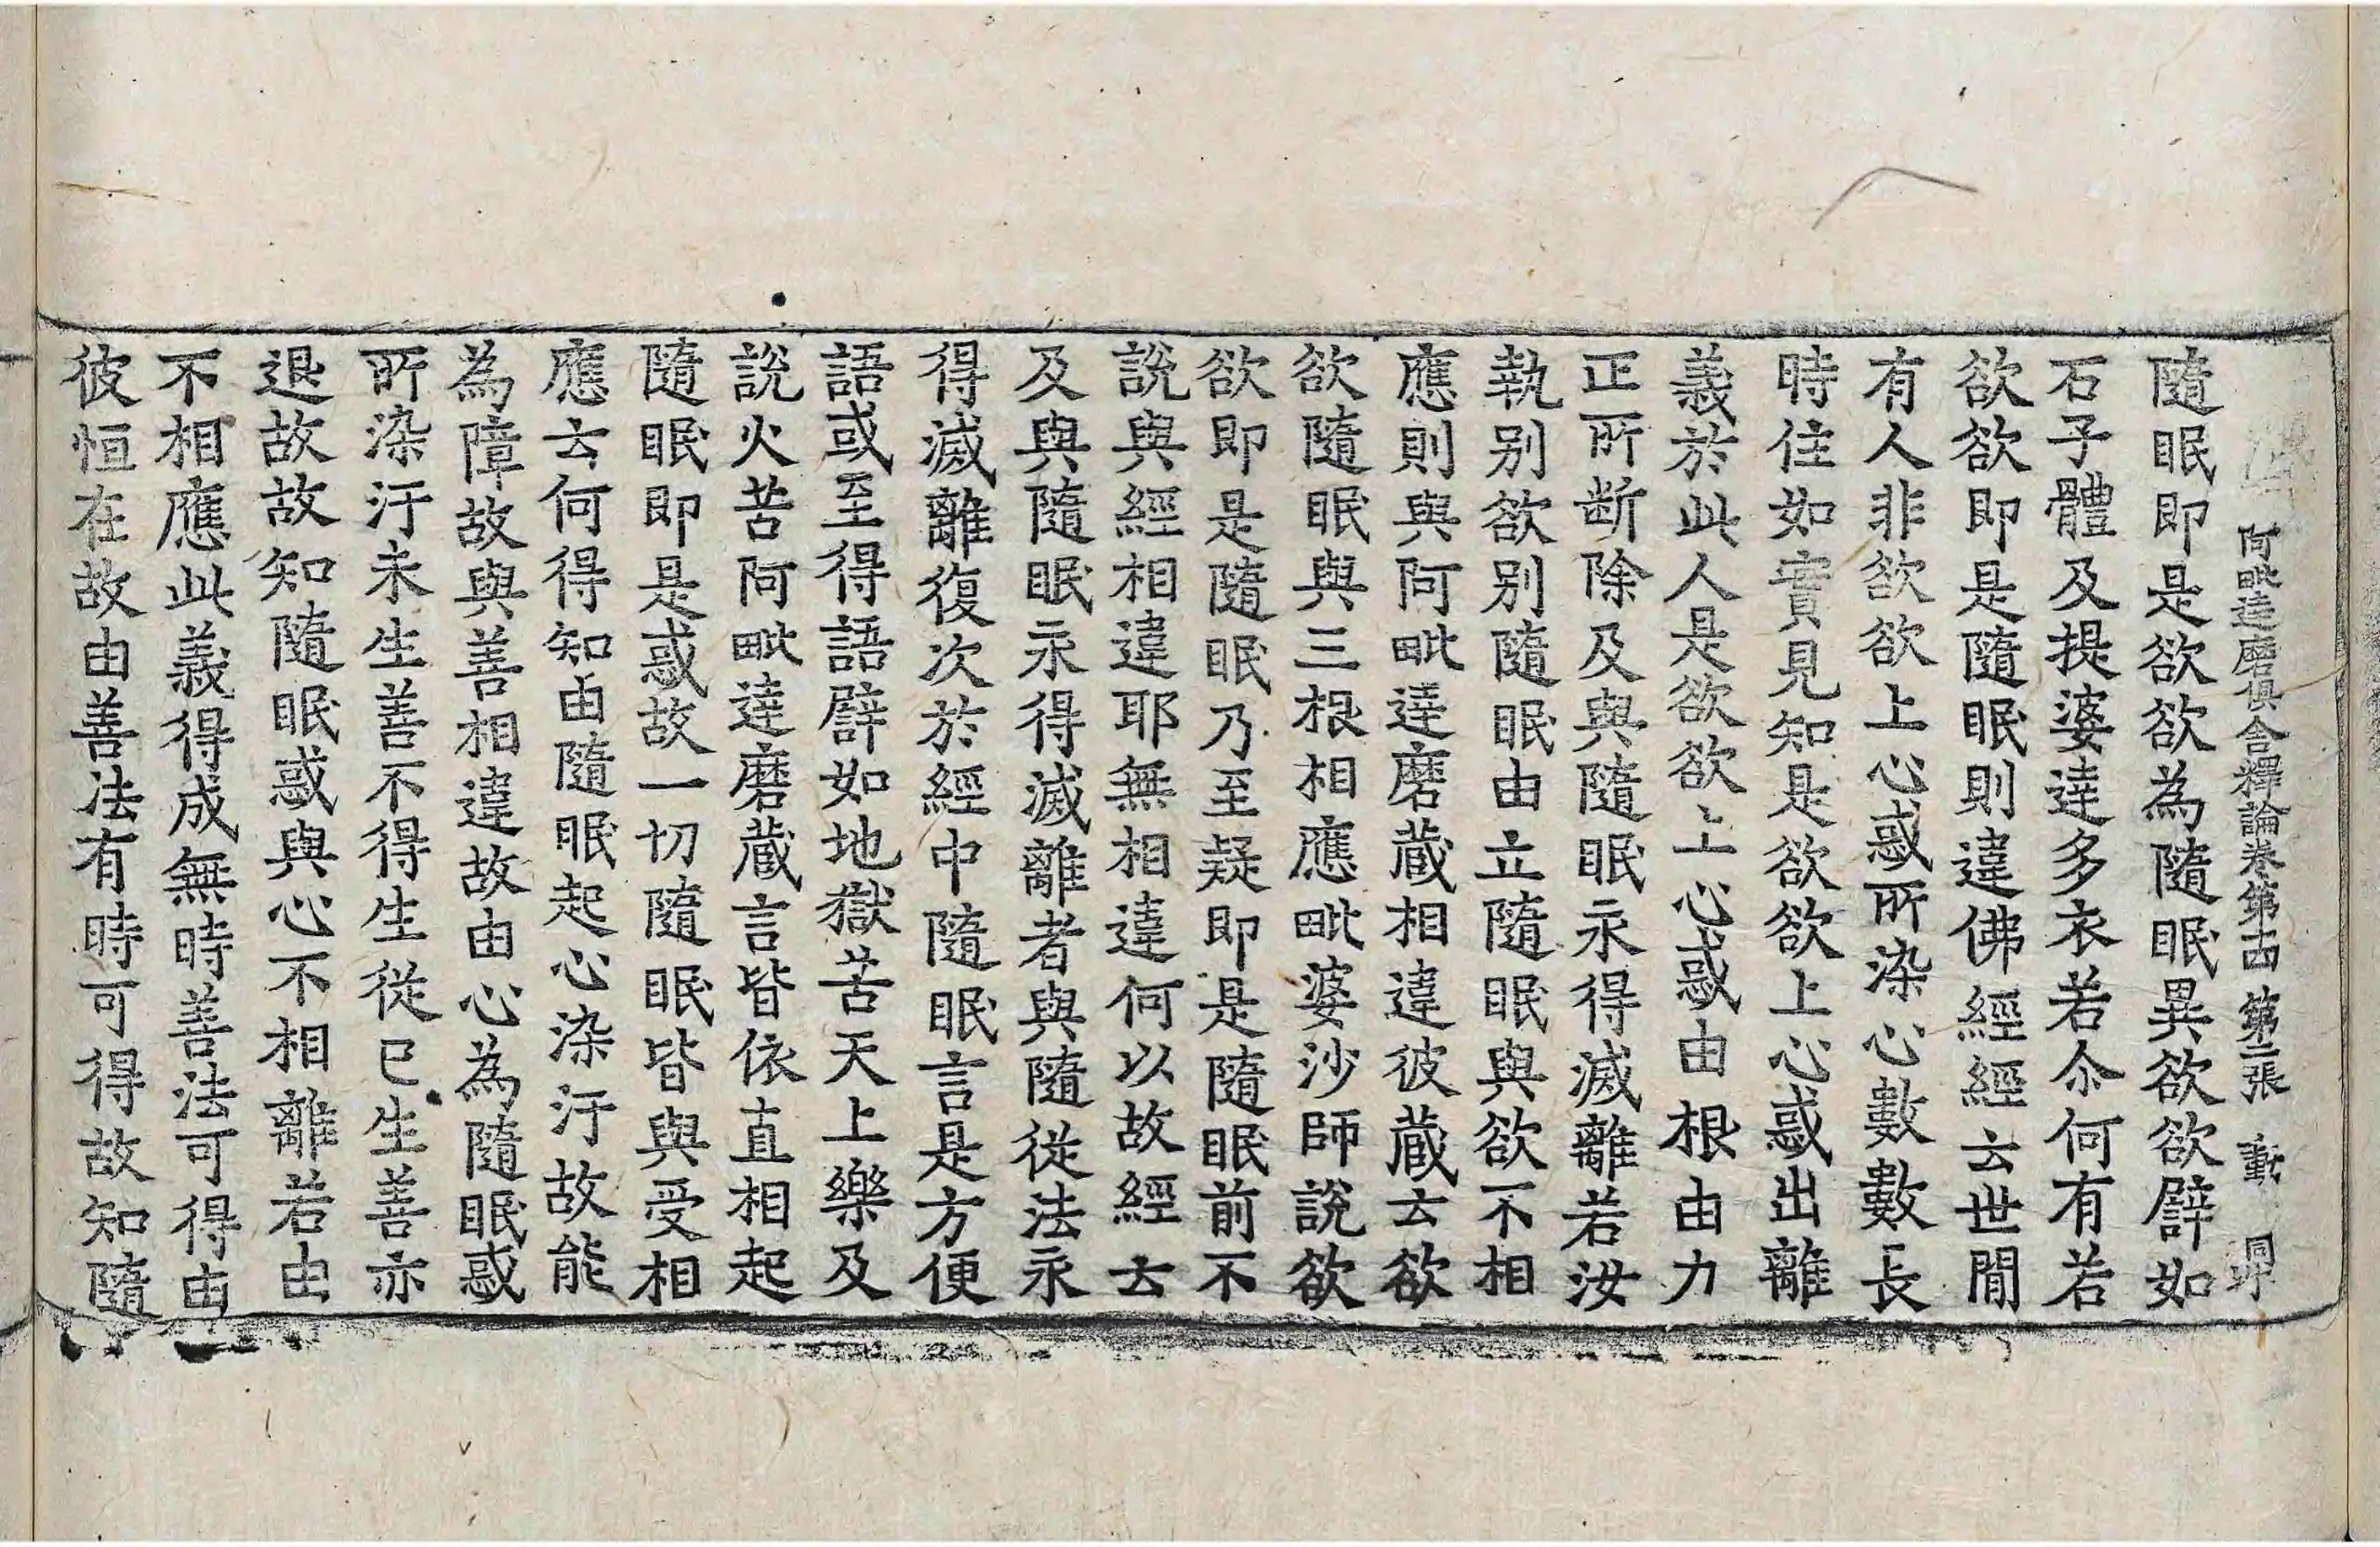 阿毗達磨俱舍釋論卷第十四 第二張 動 同印
隨眠即是欲欲為隨眠異欲欲譬如
石子體及提婆達多衣若尒何有若
欲欲即是隨眠則違佛經經云世間
有人非欲欲上心惑所染心數數長
時住如實見知是欲欲上心惑出離
義於此人是欲欲上心惑由根由力
正所断除及與隨眠永得滅離若汝
執别欲别隨眠由立隨眠與欲不相
應則與阿毗達磨蔵相違彼蔵云欲
欲隨眠與三根相應毗婆沙師說欲
欲即是隨眠乃至疑即是隨眠前不
說與經相違耶無相違何以故經云
及與隨眠永得滅離者與隨從法永
得滅離復次於經中隨眠言是方便
語或至得語譬如地獄苦天上樂及
說火苦阿毗達磨蔵言皆依直相起
隨眠即是惑故一切隨眠皆與受相
應云何得知由隨眠起心染汙故能
為障故與善相違故由心為隨眠惑
所染汙未生善不得生從已生善亦
退故故知隨眠惑與心不相離若由
不相應此義得成無時善法可得由
彼恒在故由善法有時可得故知隨